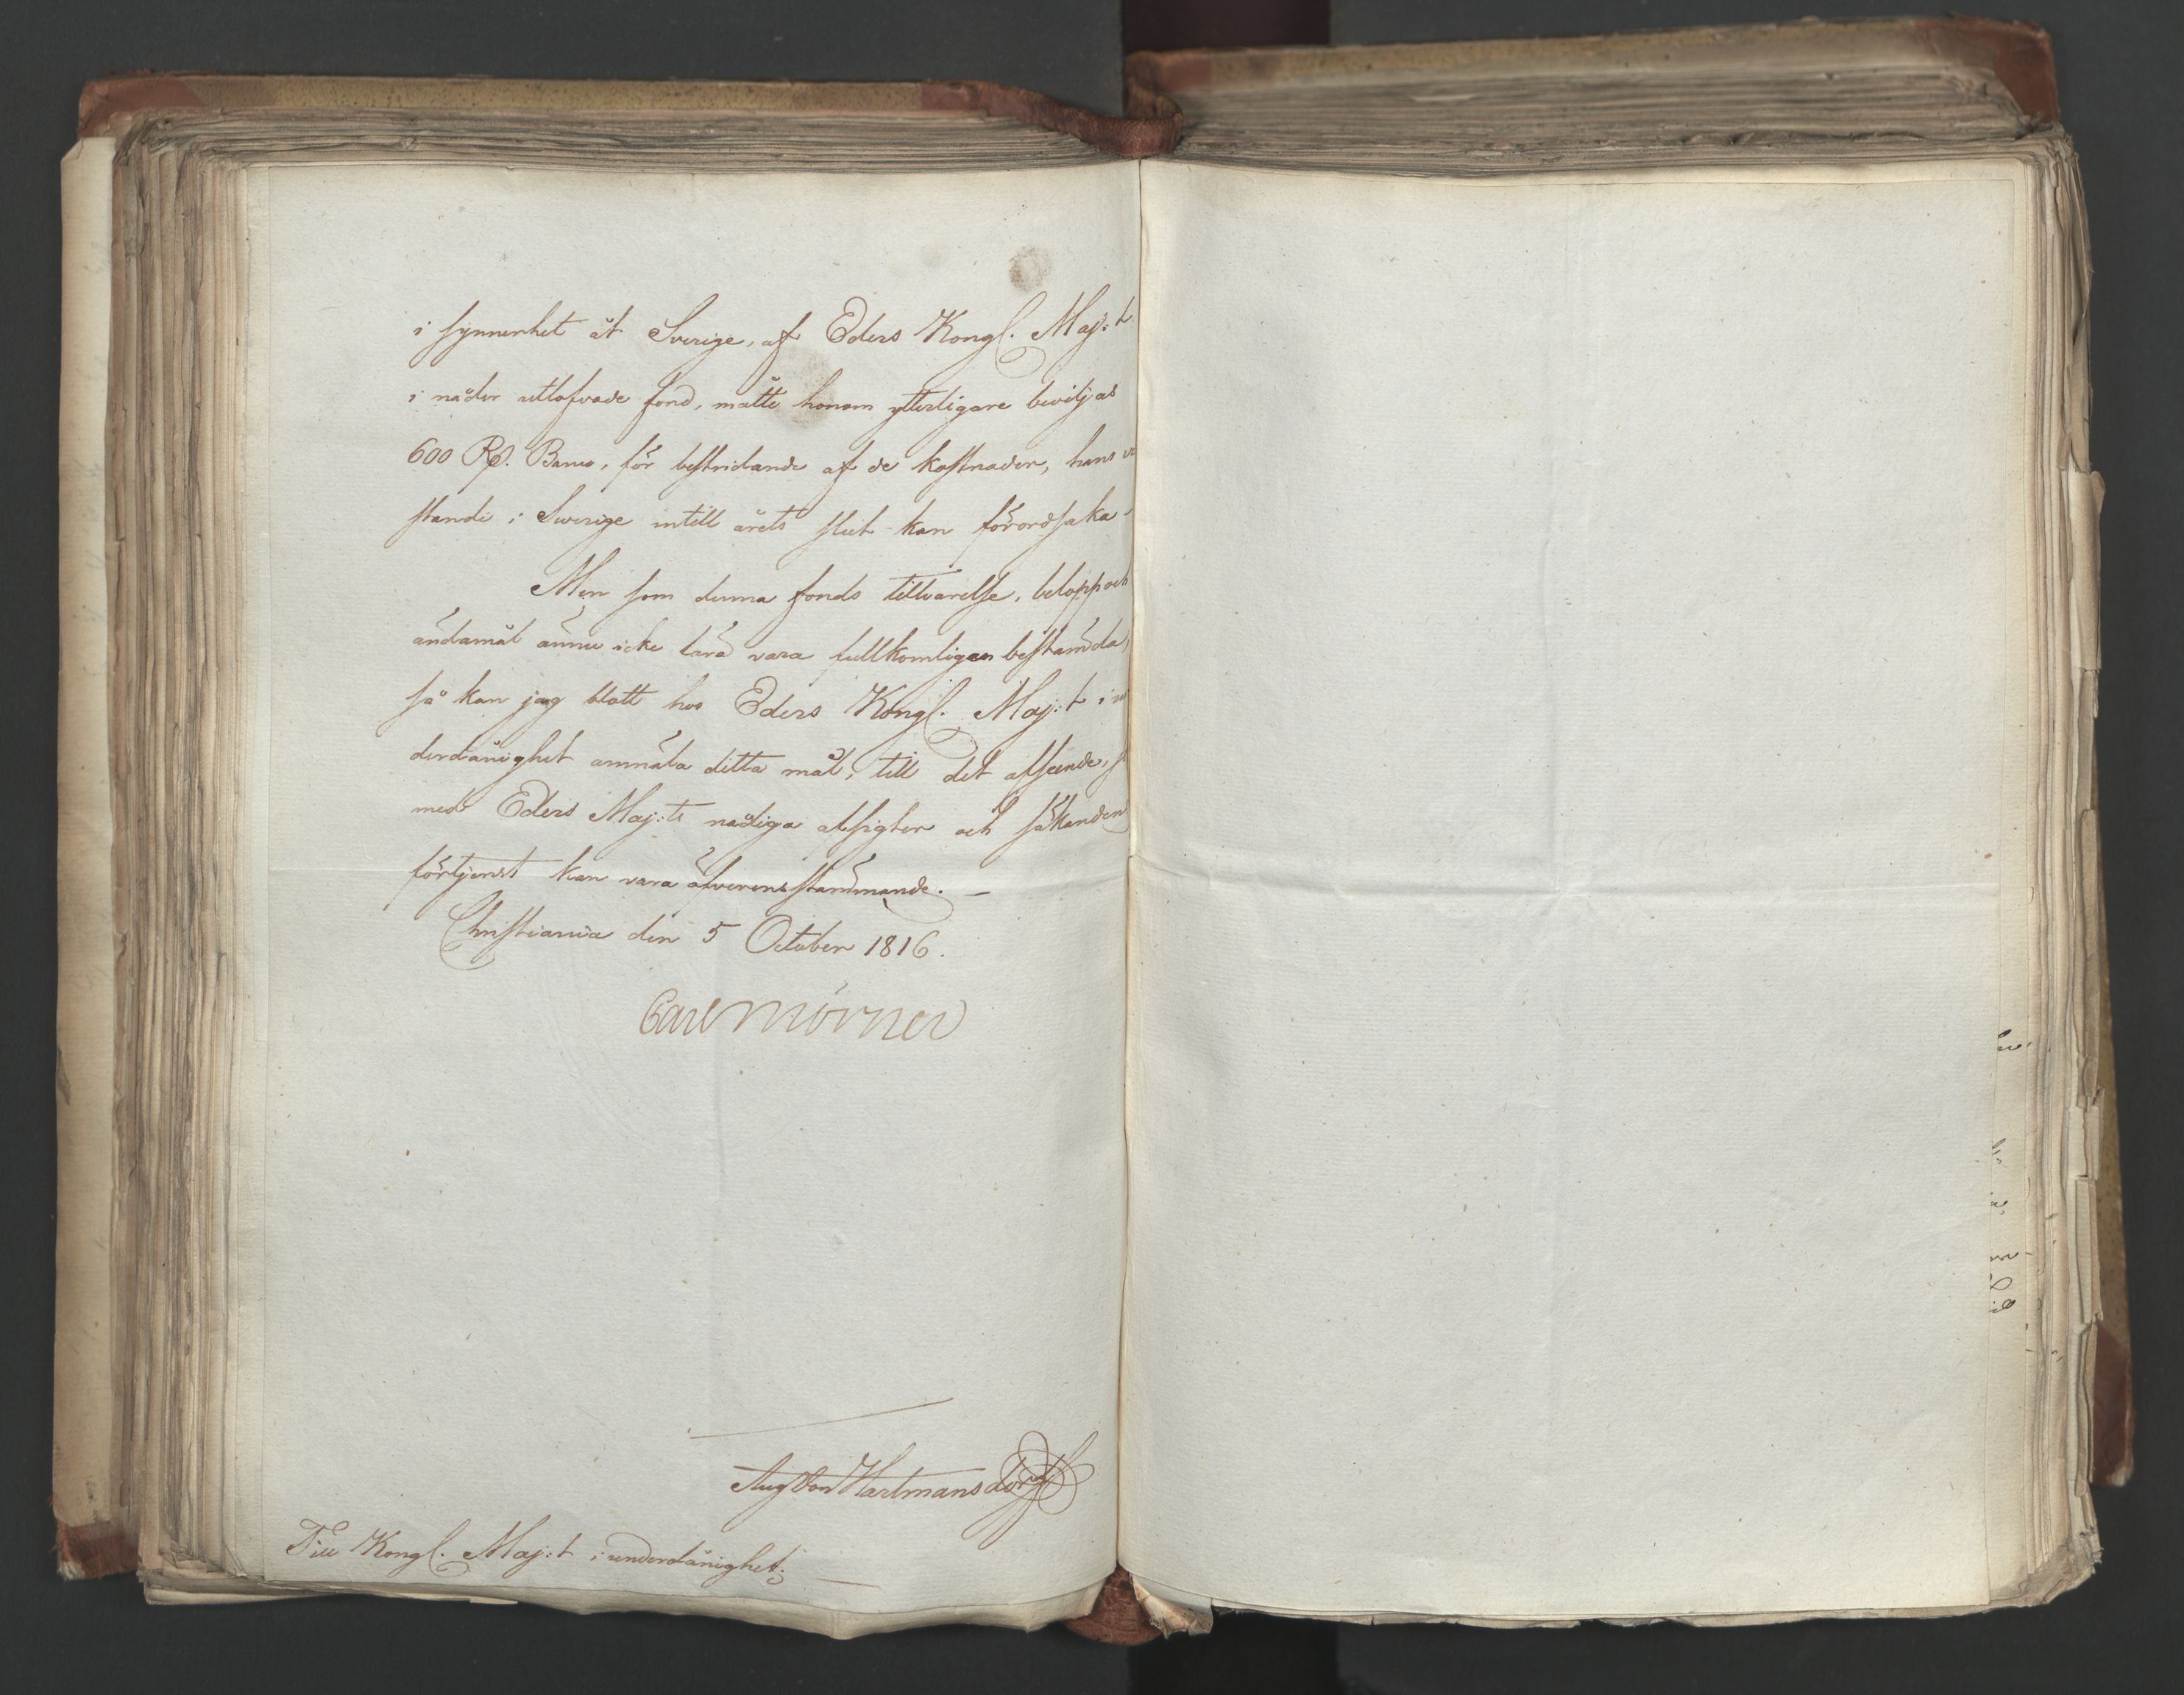 i synnerhet åt Sverige, af Eders Kongl. Maj:t
i nåder utlofvade fond, måtte honom ytterligare beviljas
600 Rd. Banco, för bestridande af de kostnader, hans
stande i Sverige intill årets slut kan förordsaka.
Men som denna fonds tillvarelse, belopp och
ändamål ännu icke lärä vara fullkomligen bestämda,
så kan jag blott hos Eders Kongl. Maj:t i un
derdånighet anmäla detta mål, till det afseende,
med Eders Maj:ts nådiga afsigter och sökanden
förtjenst kan vara öfverensstämmande. —
Christiania den 5 October 1816.
Carl Mörner
Aug von Hartmansdorff
Till Kongl. Maj:t i underdånighet; —